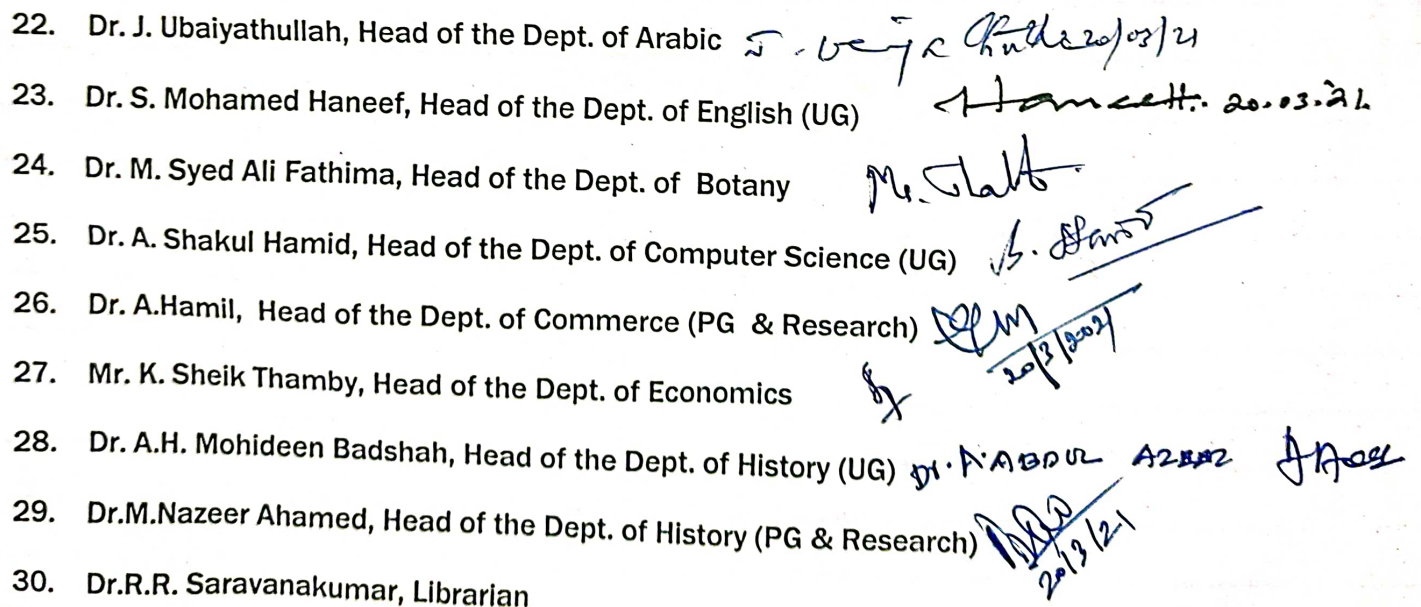 22. Dr. J. Ubaiyathullah, Head of the Dept. of Arabic 20/03/21
23. Dr. S. Mohamed Haneef, Head of the Dept. of English (UG) 20.03.21
24. Dr. M. Syed Ali Fathima, Head of the Dept. of Botany
25. Dr. A. Shakul Hamid, Head of the Dept. of Computer Science (UG)
26. Dr. A.Hamil, Head of the Dept. of Commerce (PG & Research) 20/3/2021
27. Mr. K. Sheik Thamby, Head of the Dept. of Economics
28. Dr. A.H. Mohideen Badshah, Head of the Dept. of History (UG) Dr. A. ABDUL AZEEZ
29. Dr.M.Nazeer Ahamed, Head of the Dept. of History (PG & Research) 20/3/21
30. Dr.R.R. Saravanakumar, Librarian